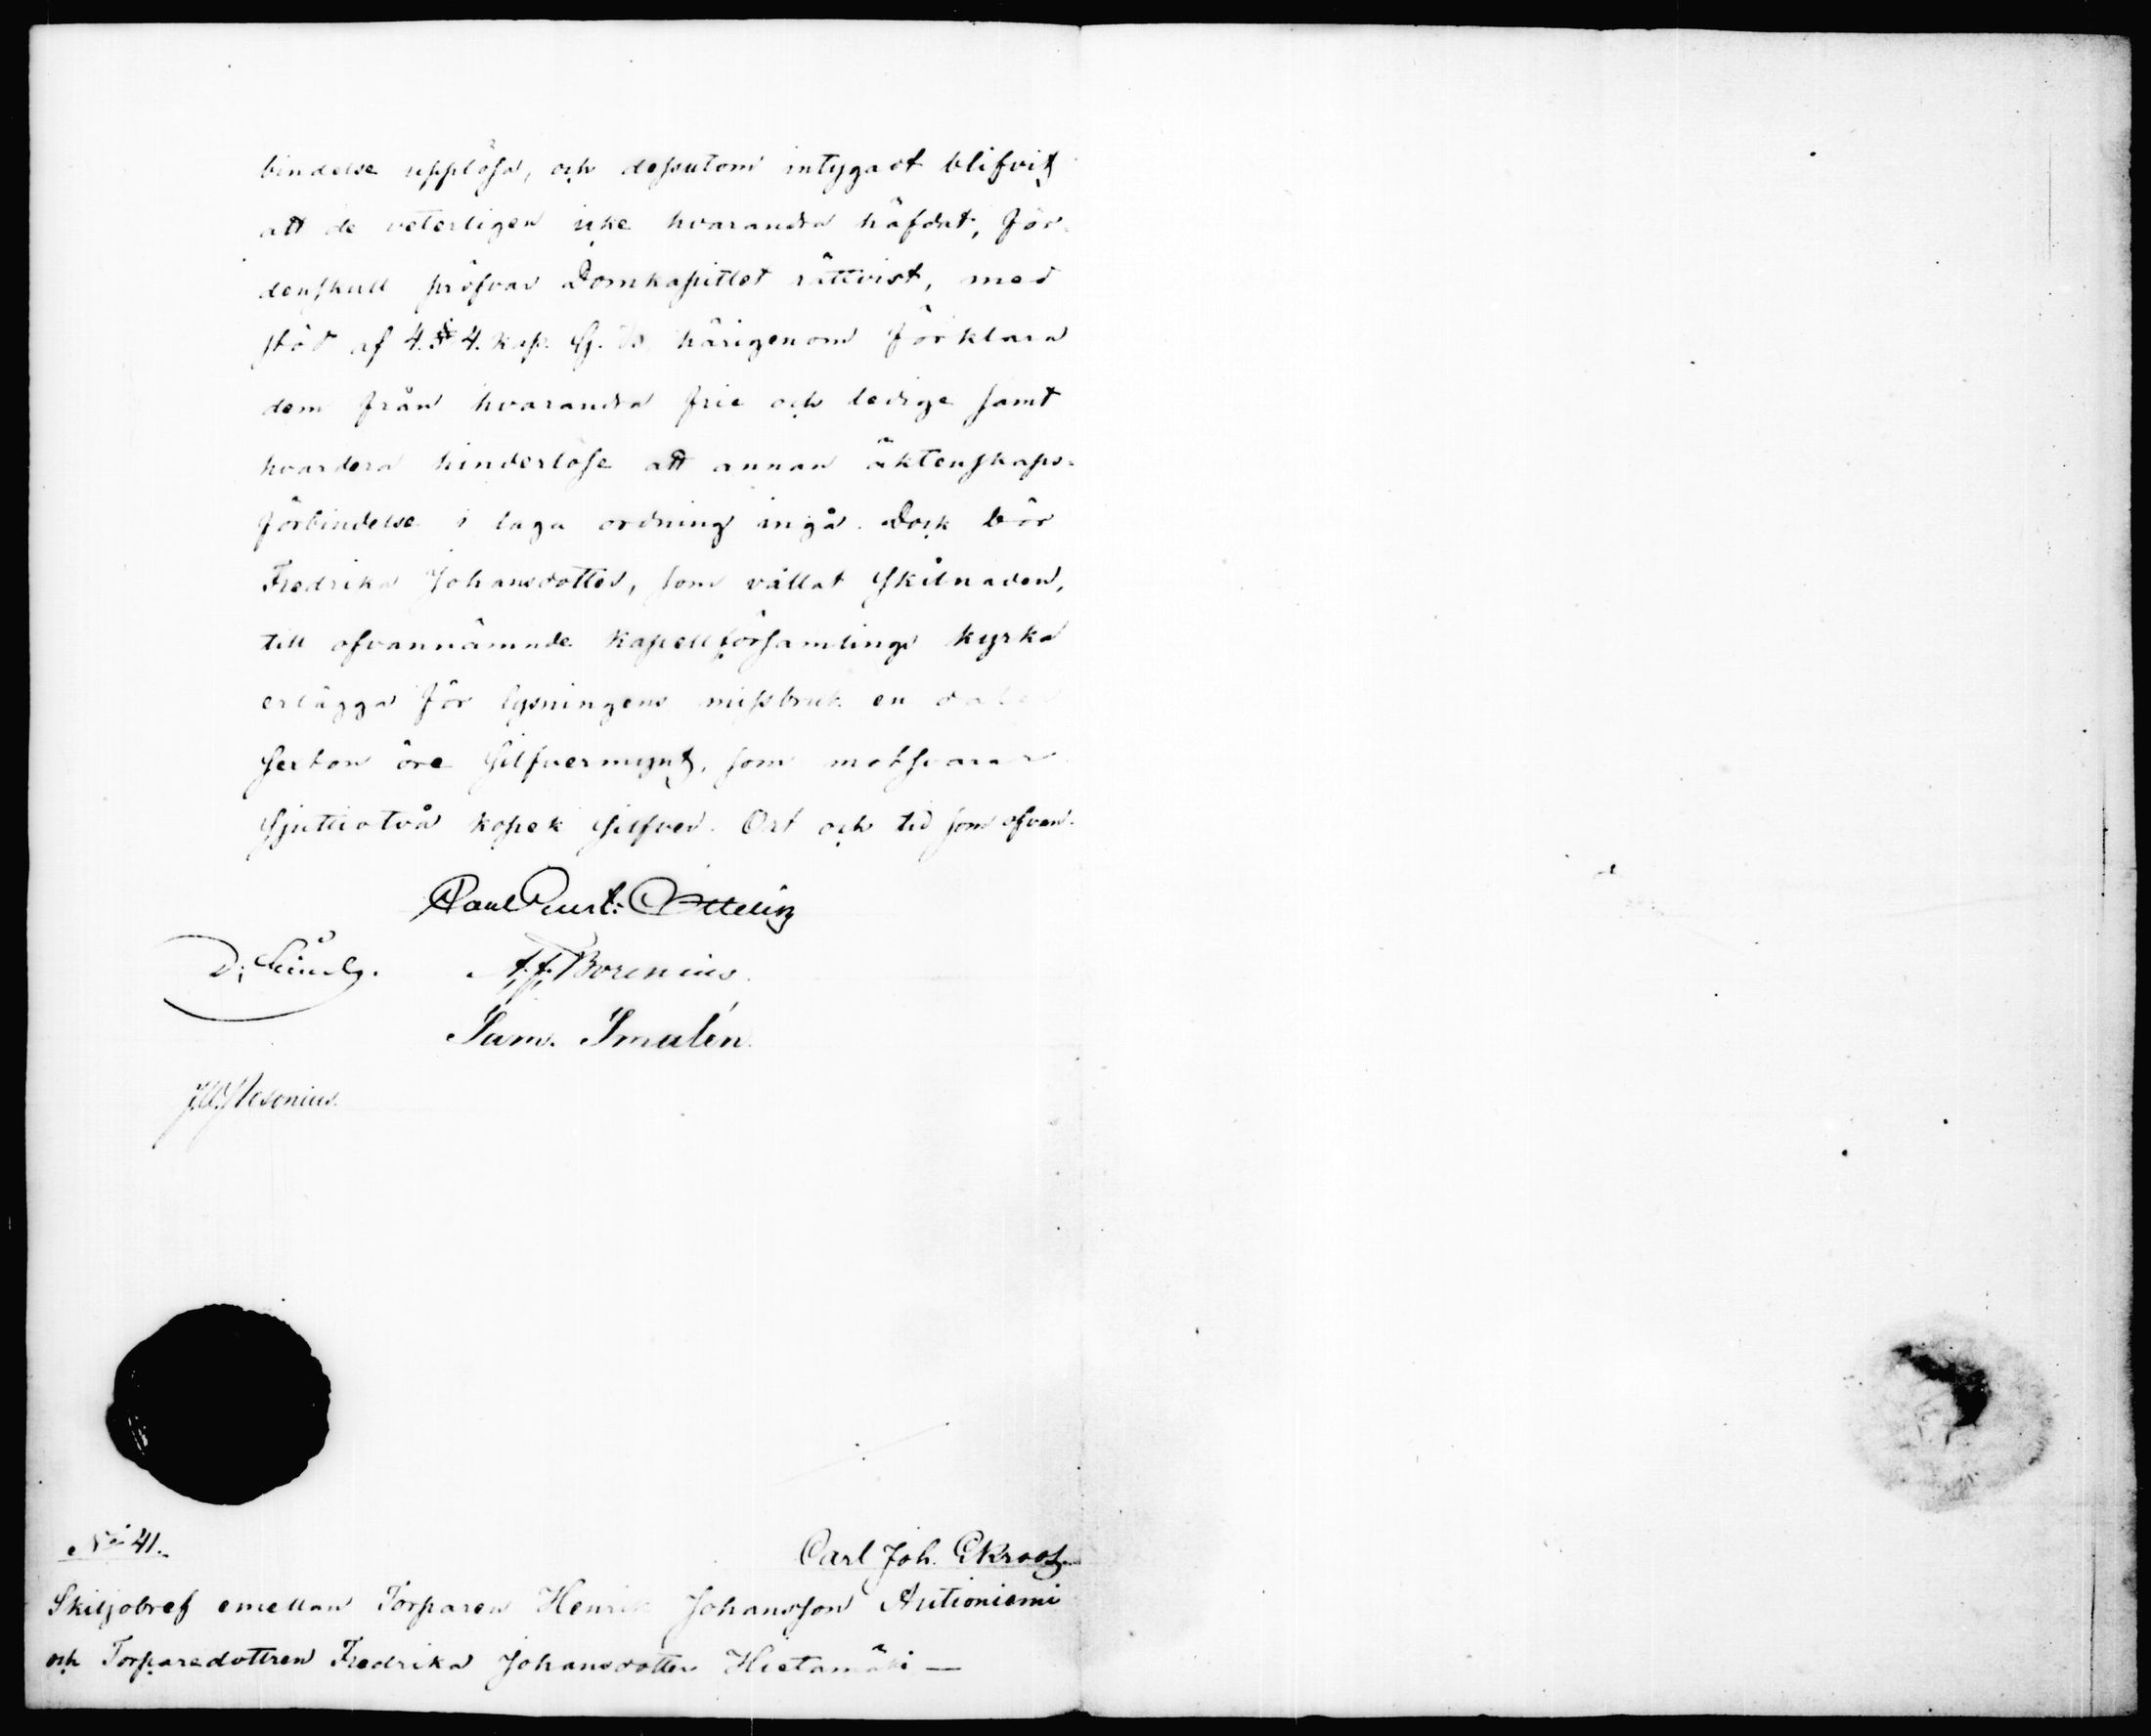 bindelse upplösa, och dessutom intygadt blifvit
att de veterligen icke hvarandra häfdat; för-
denskull pröfvar Domkapitlet rättvist, med
stöd af 4. § 4. kap. G. B. härigenom förklara
dem från hvarandra frie och ledige samt
hvardera hinderlöse att annan äktenskaps-
förbindelse i laga ordning ingå. Dock bör
Fredrika Johansdotter, som vållat skilnaden,
till ofvannämnde Kapellförsamlings kyrka
erlägga för lysningens missbruk en daler
sexton öre Silfvermynt, som motsvarar
sjuttiotvå kopek Silfver. Ort och tid som ofvan.
D.
A. F. Borenius.
Sam. Smalén.
Carl Joh. Ekroos
No 41.
Skiljobref emellan Torparen Henrik Johansson Autioniemi
och Torparedottren Fredrika Johansdotter Hietamäki —